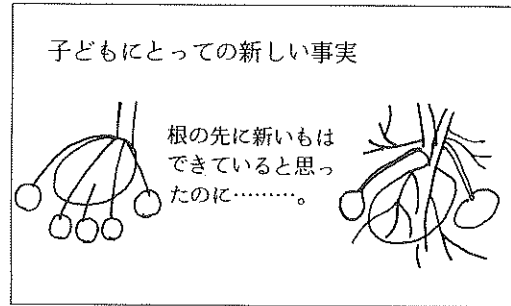 子どもにとっての新しい事実
根の先に新いもは
できていると思っ
たのに………。